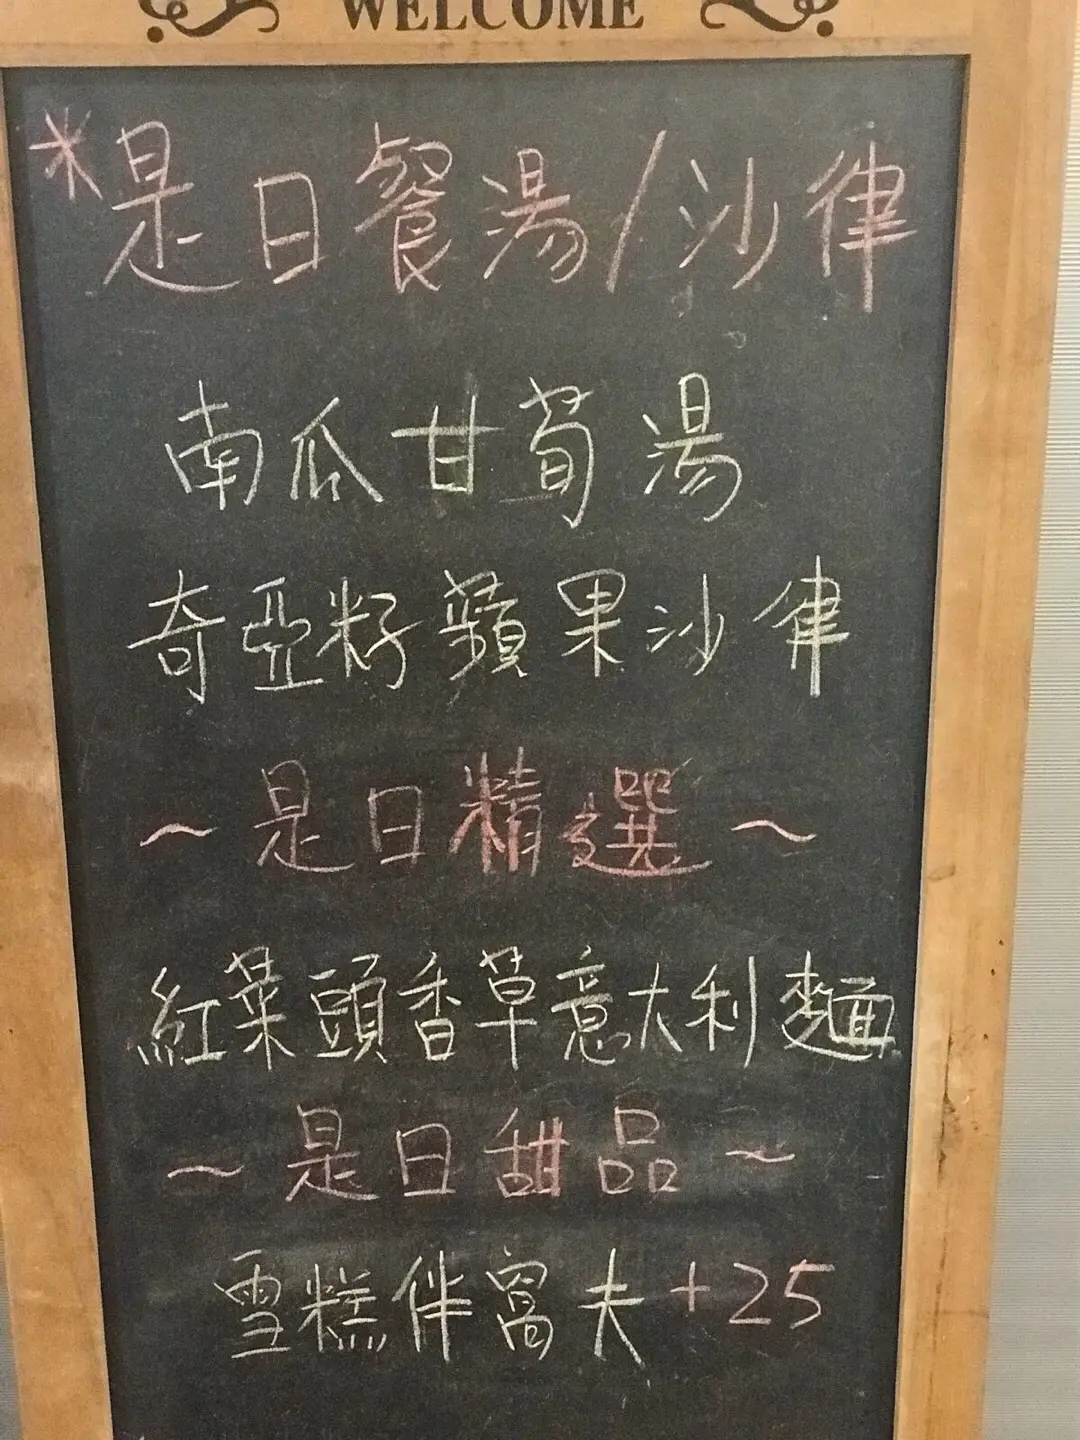 WELCOME
*是日餐湯/沙律
南瓜甘荀湯
奇亞籽蘋果沙律
~是日精選~
紅菜頭香草意大利麵
~是日甜品~
雪糕伴窩夫+25